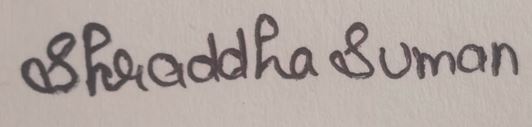 Shraddha Suman